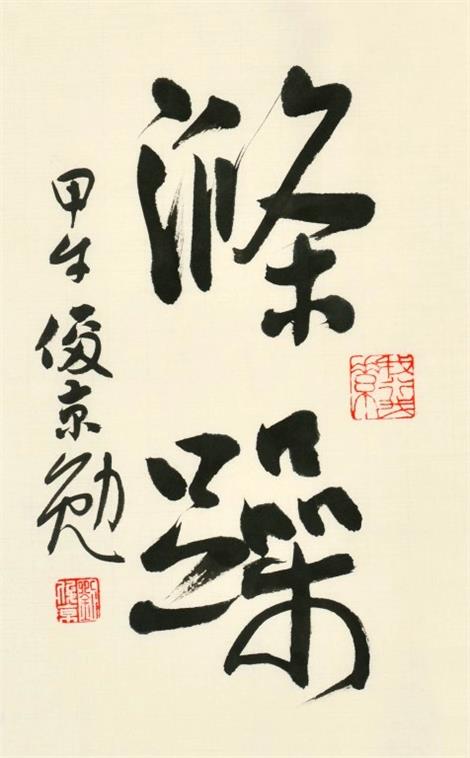 滌躁
甲午俊京勉